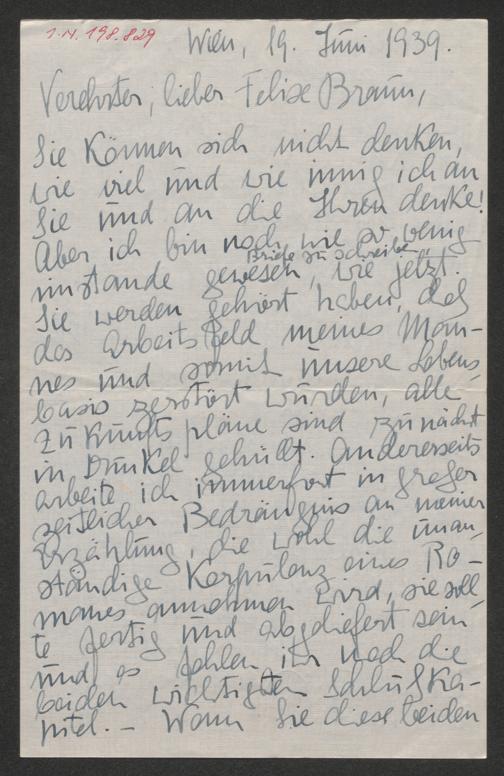 I.N. 198.829
Wien, 19. Juni 1939.
Verehrter, lieber Felix Braun,
Sie können sich nicht denken,
wie viel und wie innig ich an
Sie und an die Ihren denke!
Aber ich bin noch nie so wenig
imstande Briefe zu schreiben gewesen, wie jetzt.
Sie werden gehört haben, daß
das Arbeitsfeld meines Man-
nes und somit unsere Lebens
basis zerstört wurden, alle
Zukunftspläne sind zunächst
in Dunkel gehüllt. Andererseits
arbeite ich immerfort in großer
zeitlicher Bedrängnis an meiner
Erzählung, die wohl die unan-
ständige Korpulenz eines Ro-
manes annehmen wird, sie soll-
te fertig und abgeliefert sein
und es fehlen ihr noch die
beiden wichtigsten Schlußka-
pitel. – Wann Sie diese beiden